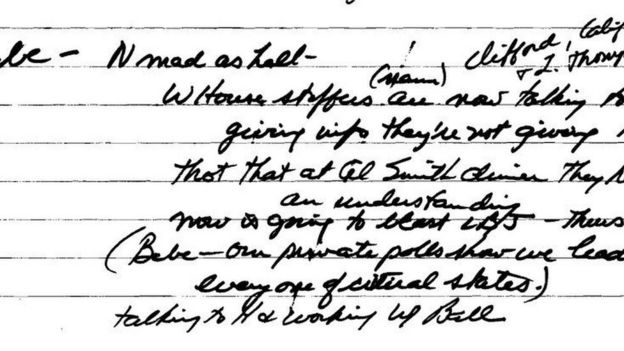 Calif
Clifford,
Bebe – N mad as hell – & L. Thomp
(name)
W House staffers are now talking to
giving info they're not giving
thot that at Al Smith dinner they h
an understanding
now is going to blast LBJ – Thurs
(Bebe – Our private polls show we lead
every one of critical states.)
talking to H & working w/ Bell